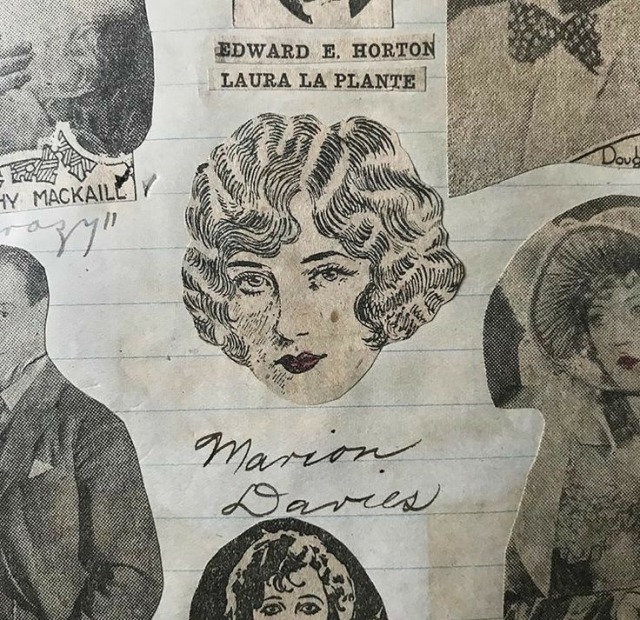 EDWARD E. HORTON
LAURA LA PLANTE
HY MACKAILL
Doug
razy"
Marion
Davies